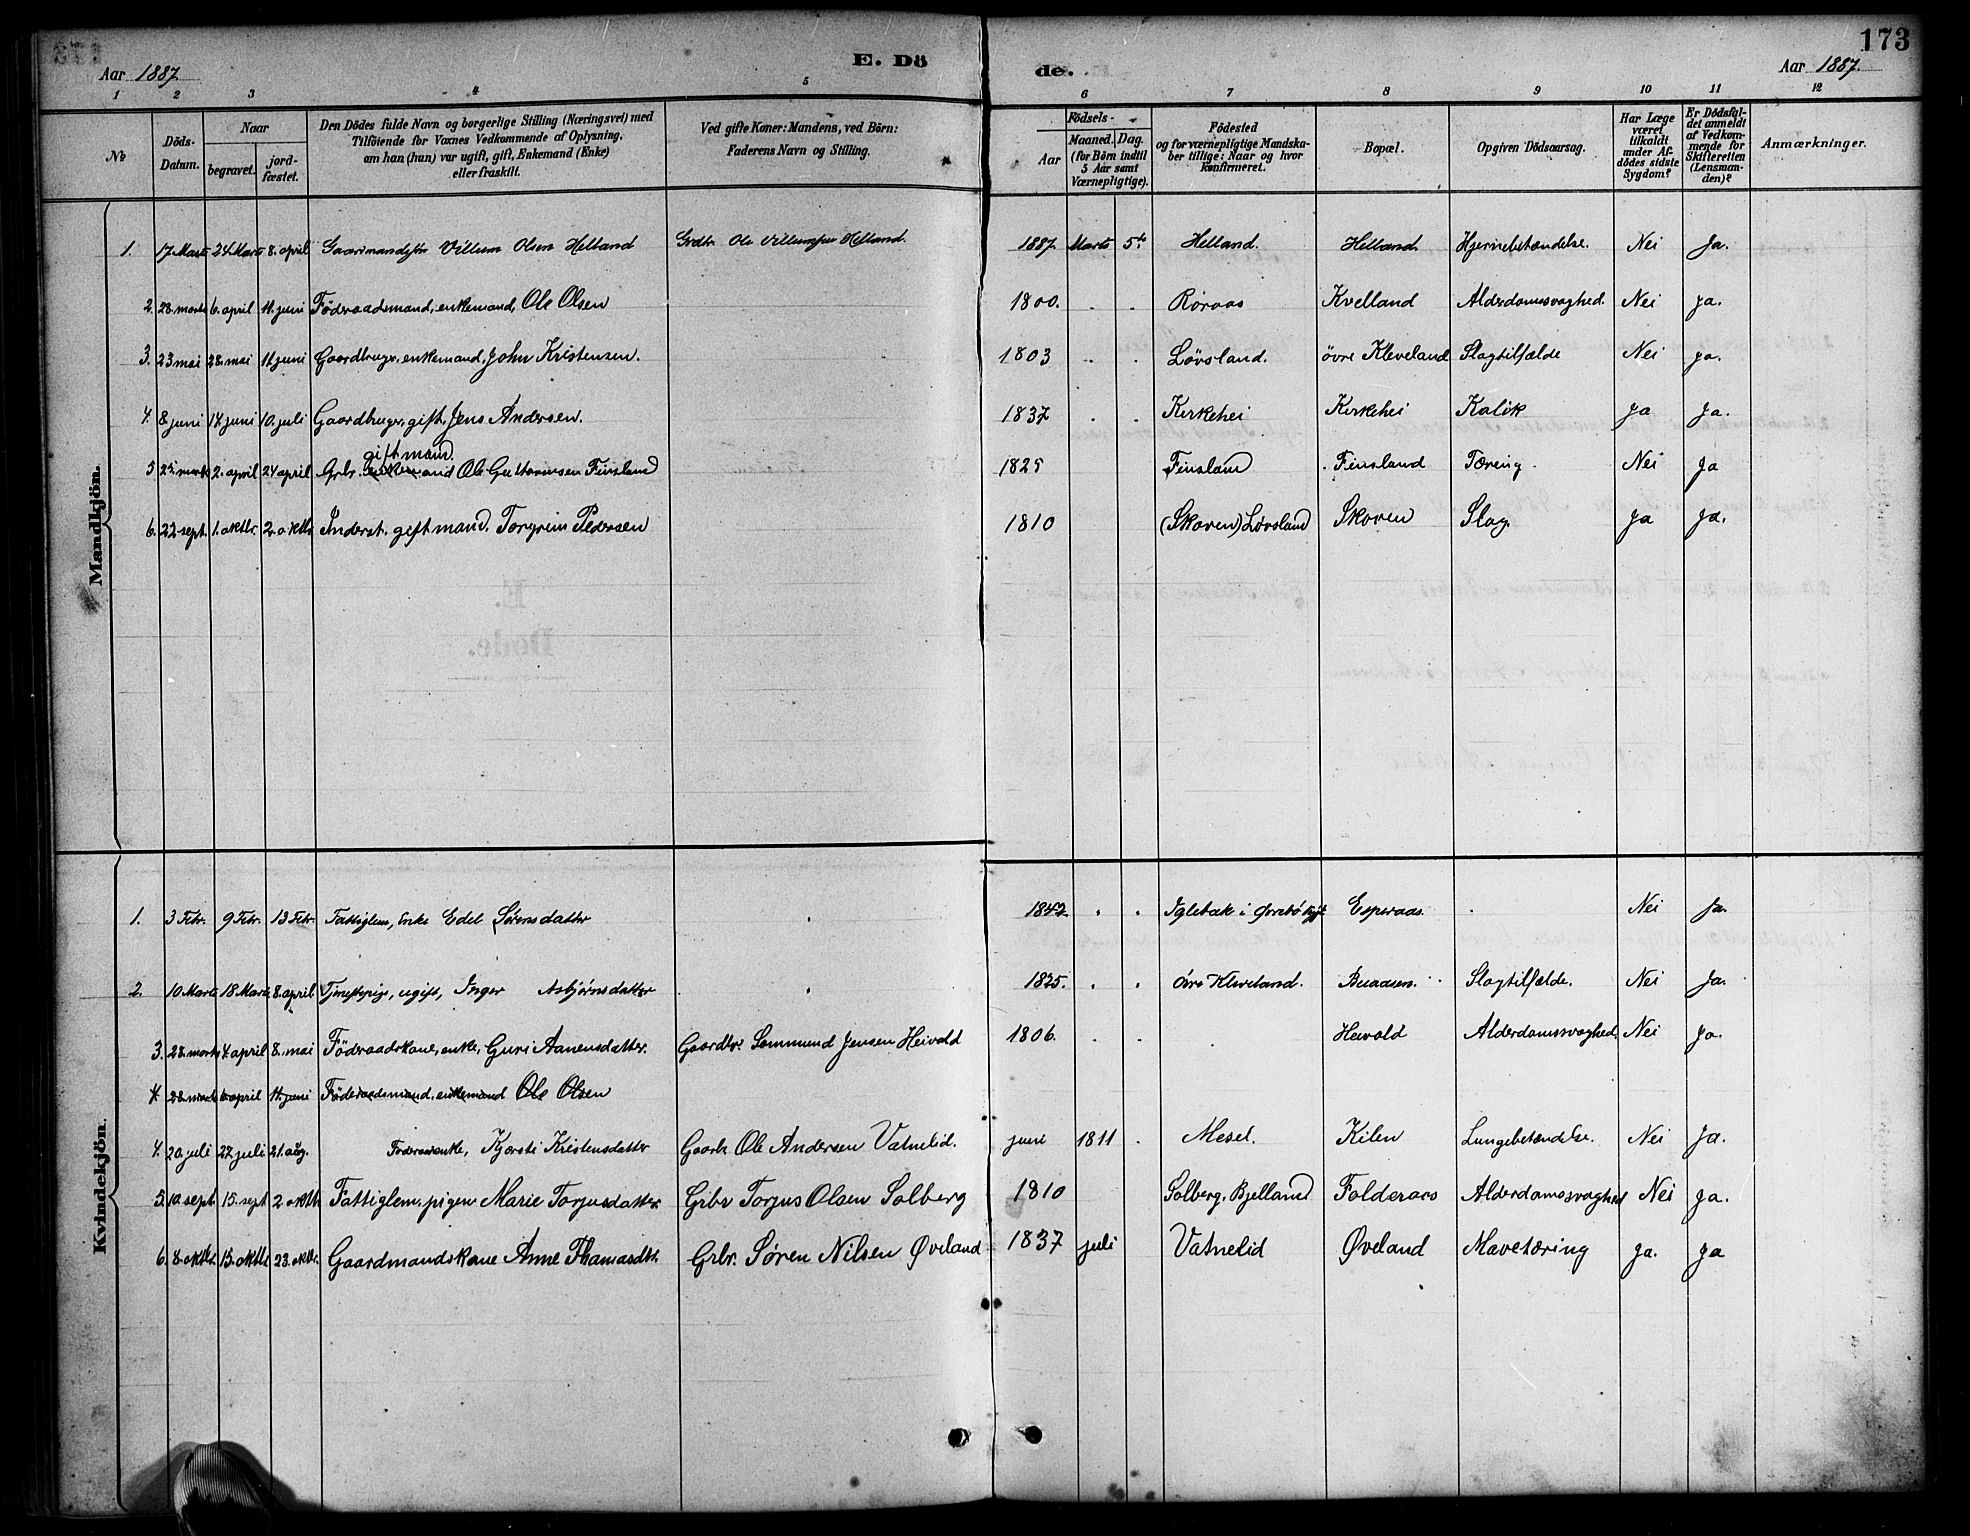 173
Aar 1887. E. Dö de. Aar 1887.
1 2 3 4 5 6 7 8 9 10 11 12
No
Döds-Datum.
Naar
begravet.
jord-fæstet.
Den Dödes fulde Navn og borgerlige Stilling (Næringsvei) med
Tilföiende for Voxnes Vedkommende af Oplysning,
om han (hun) var ugift, gift, Enkemand (Enke)
eller fraskilt.
Ved gifte Koner: Mandens, ved Börn:
Faderens Navn og Stilling.
Födsels-
Aar
Maaned. Dag.
(for Börn indtil
5 Aar samt
Værnepligtige).
Födested
og for værnepligtige Mandska-
ber tillige: Naar og hvor
konfirmeret.
Bopæl.
Opgiven Dödsaarsag.
Har Læge
været
tilkaldt
under Af-
dödes sidste
Sygdom?
Er Dödsfal-
det anmeldt
af Vedkom-
mende for
Skifteretten
(Lensman-
den)?
Anmærkninger.
Mandkjön.
1. 17. Marts 24. Marts 8. april Gaardmandssön Villum Olsen Helland Grdbr. Ole Villumsen Helland. 1887. Marts 5te Helland. Helland Hjernebetændelse. Nei Ja.
2. 28. marts 6. april 11. juni Föderaadsmand, enkemand, Ole Olsen 1800. . . Röraas Kvelland Alderdomssvaghed. Nei ja.
3. 23 mai 28. mai 11 juni Gaardbruger, enkemand, John Kristensen. 1803 . . Lövsland. övre Kleveland Slagtilfælde Nei ja.
4. 8 juni 14 juni 10. juli Gaardbruger, gift, Jens Andersen. 1837 . . Kirkehei Kirkehei Kolik ja ja.
gift mand.
5 25. marts 2. april 24 april Grbr. Enkemand Ole Guttormsen Finsland 1825 Finsland Finsland Tæring. Nei ja
6. 22 sept. 1. oktbr. 2. oktbr Inderst. gift mand. Torgrim Pedersen 1810 (Skoven) Lövsland Skoven Slag. ja ja.
Kvindekjön.
1. 3 Febr. 9 Febr. 13 Febr. Fattiglem, Enke Edel Sörensdatter . 1842 . . Iglebæk i Esperaas. . Nei Ja.
2. 10 Marts 18 Marts 8. april Tjenestepige, ugift, Inger Asbjörnsdatter . 1825. . . övre Kleveland. Buaasen. Slagtilfælde. Nei Ja.
3. 28. marts 4. april 8. mai Föderaadskone, enke, Guri Aanensdatter. Gaardbr. Sommund Jensen Heivold 1806. . . . Heivold Alderdomssvaghed. Nei Ja.
4 28 marts 6 april 11. juni Föderaadsmand, enkemand Ole Olsen
4. 20 juli 27. juli 21. aug. Föderaadenke, Kjersti Kristensdatter Gaarbr. Ole Andersen Vatnelid. juni 1811 . Mesel. Kilen Lungebetændelse. Nei Ja.
5. 10. sept. 15. sept 2 oktbr Fattiglem, pigen Marie Torjusdatter. Grbr Torjus Olsen Solberg 1810 Solberg, Bjelland Folderaas Alderdomssvaghed Nei ja.
6. 8. oktbr. 15. oktbr. 23. oktbr. Gaardmandskone Anne Thomasdtr. Grbr. Sören Nilsen Øveland 1837 juli Vatnelid Øveland Mavetæring ja. ja